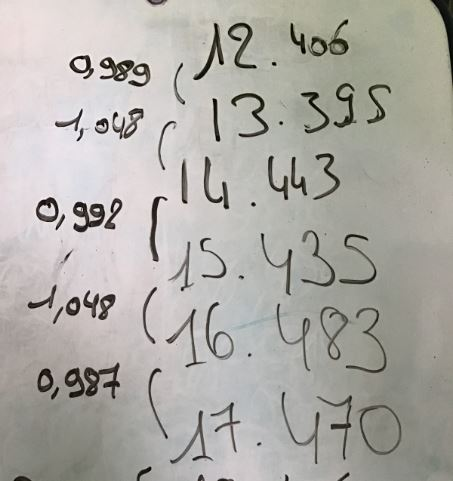 12.406
0,989
13.395
1,048
14.443
0,992
15.435
1,048
16.483
0,987
17.470